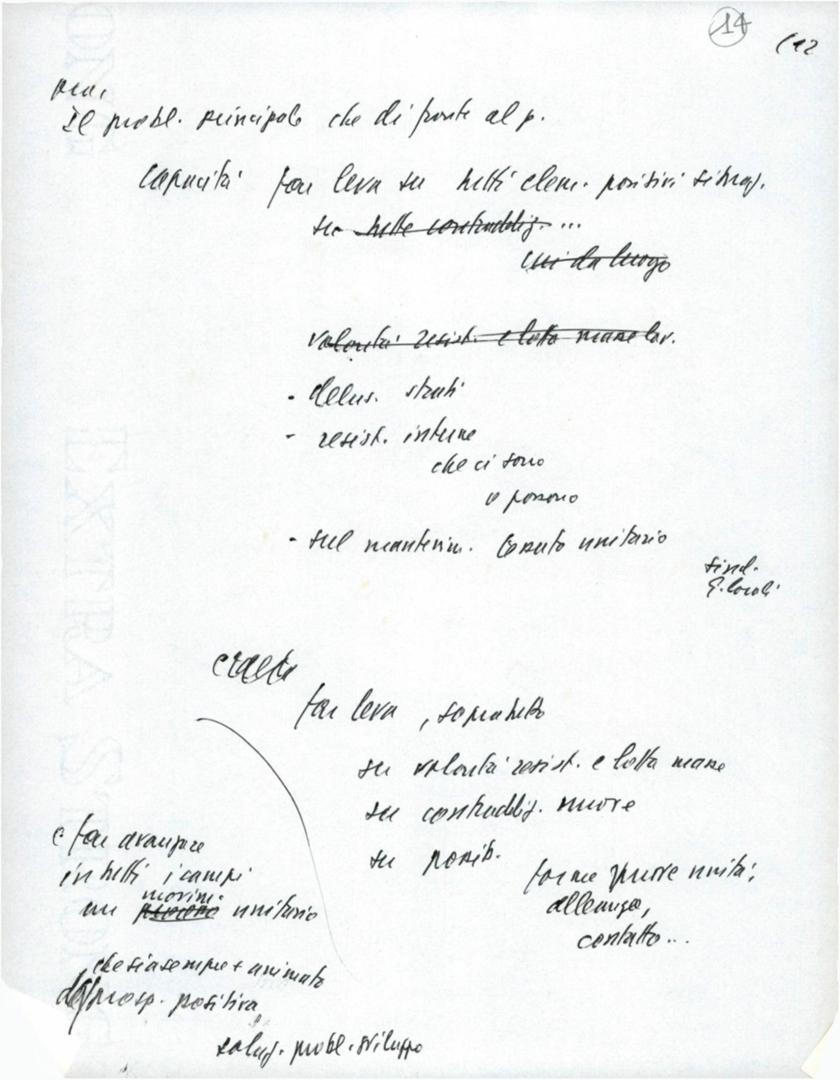 14
(12
Il probl. principale che di fronte al p.
capacità far leva su tutti elem. positivi situaz.
su tutte contraddiz. ...
cui da luogo
volontà resist. e lotta masse lav.
- delus. strati
- resist. interne
che ci sono
o possono
- sul mantenim. tessuto unitario
sind.
E. locali
far leva, sopratutto
su volontà resist. e lotta masse
su contraddiz. nuove
su possib.
forme nuove unità,
alleanza,
contatto...
e far avanzare
in tutti i campi
un movim. unitario
che sia sempre + animato
da prosp. positiva
soluz. probl. sviluppo
EXTRA STRONG